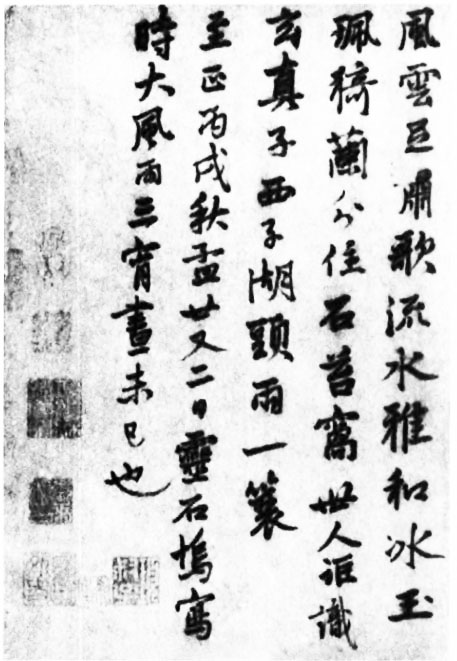 風雲嘯歌流水雅和冰玉
珮猗蘭分住石苔窩世人詎識
玄真子西子湖頭雨一簑
至正丙戌秋孟廿又二日靈石塢寫
時大風雨三宵晝未已也